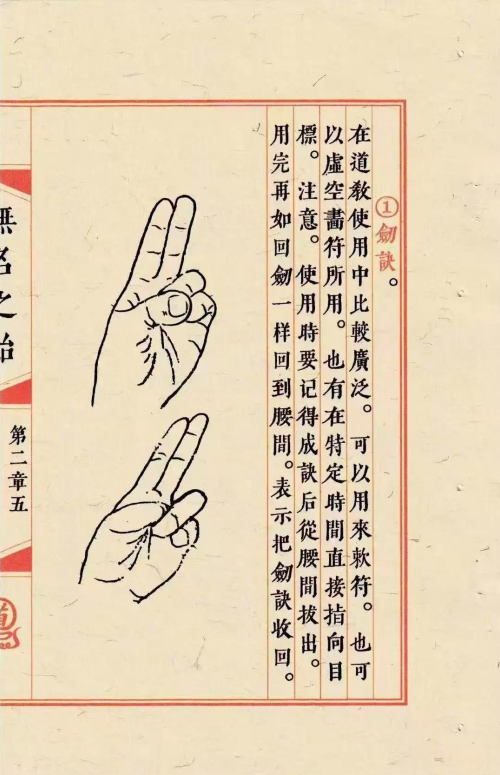 ①劍訣。
在道敎使用中比較廣泛。可以用來敕符。也可
以虛空畵符所用。也有在特定時間直接指向目
標。注意。使用時要记得成訣后從腰間拔出。
用完再如回劍一样回到腰間。表示把劍訣收回。
無名之始
第二章五
道